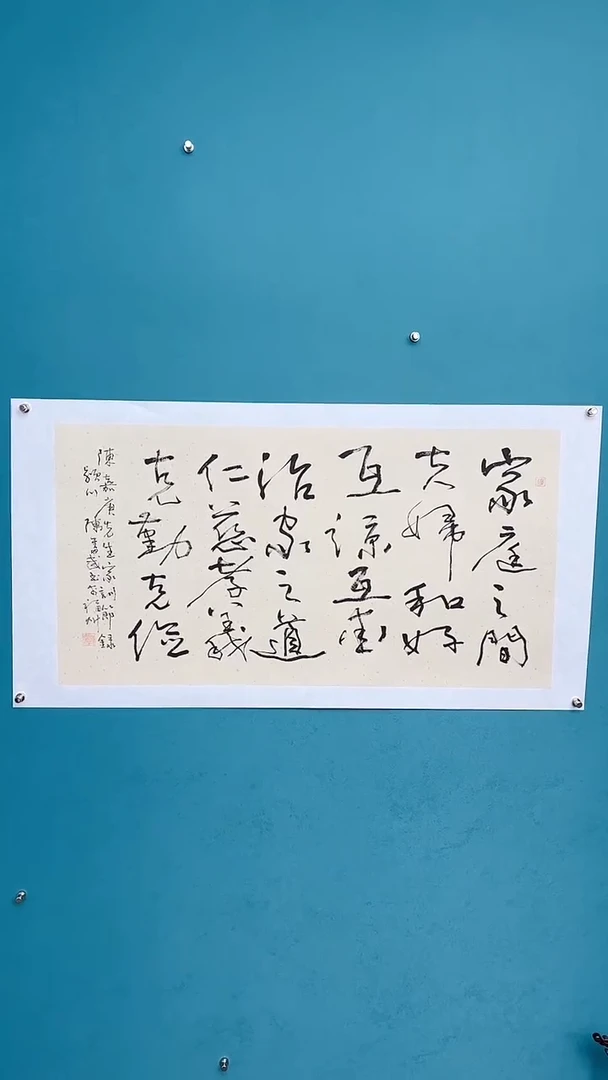 家庭之間
夫婦和好
互諒互愛
治家之道
仁慈孝義
克勤克儉
陳嘉庚先生家訓節錄
潁川 陳